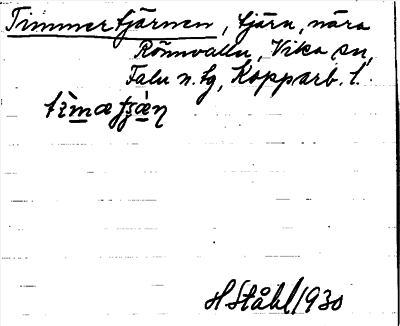 Timmertjärnen, tjärn, nära
Rönnvallen, Vika sn,
Falu n. tg, Kopparb. l.
H Ståhl 1930